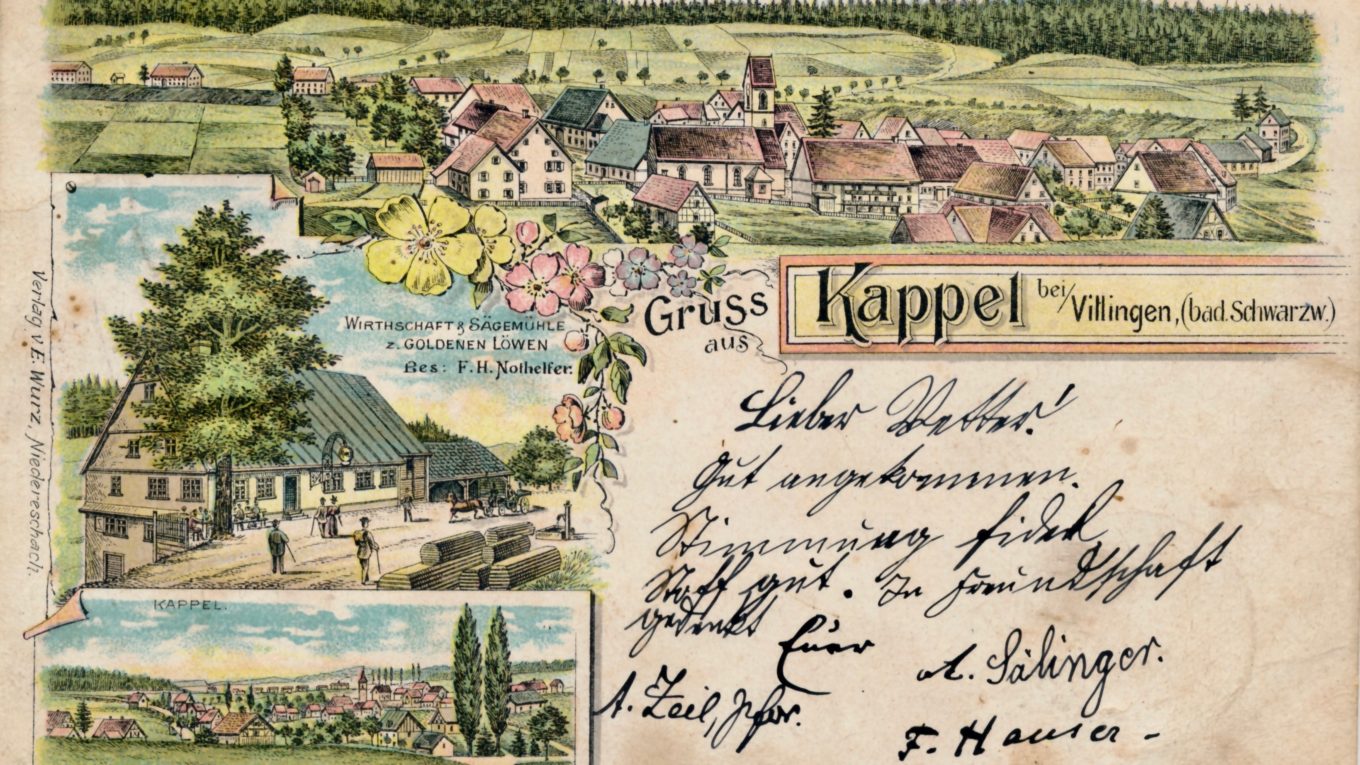 Verlag v. E. Wurz, Niedereschach.
WIRTHSCHAFT & SÄGEMÜHLE
z. GOLDENEN LÖWEN
Bes: F. H. Nothelfer.
Gruss
aus
Kappel bei Villingen, (bad. Schwarzw.)
KAPPEL.
Lieber Vetter!
Gut angekommen.
Stimmung fidel
Stoff gut. In Freundschaft
gedenkt
Euer
A. Sälinger.
A. Zeil,
F. Hauser -